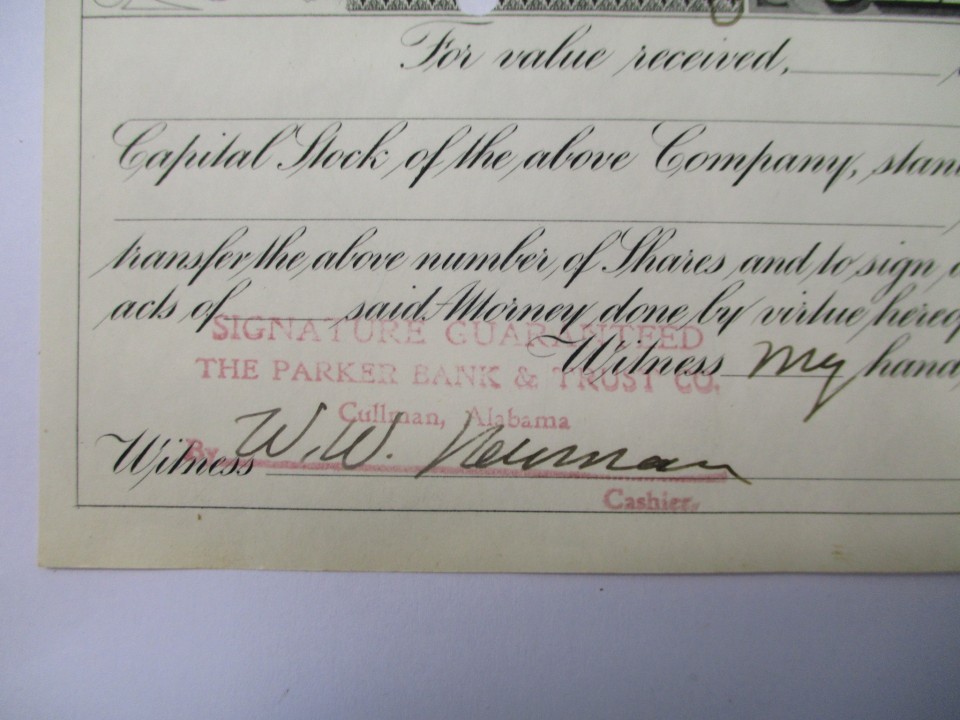 For value received,
Capital Stock of the above Company, stan
transfer the above number of Shares and to sign
acts of said Attorney done by virtue hereof
SIGNATURE GUARANTEED
Witness my hand
THE PARKER BANK & TRUST CO.
Cullman, Alabama
Witness By W. W. Newman
Cashier.